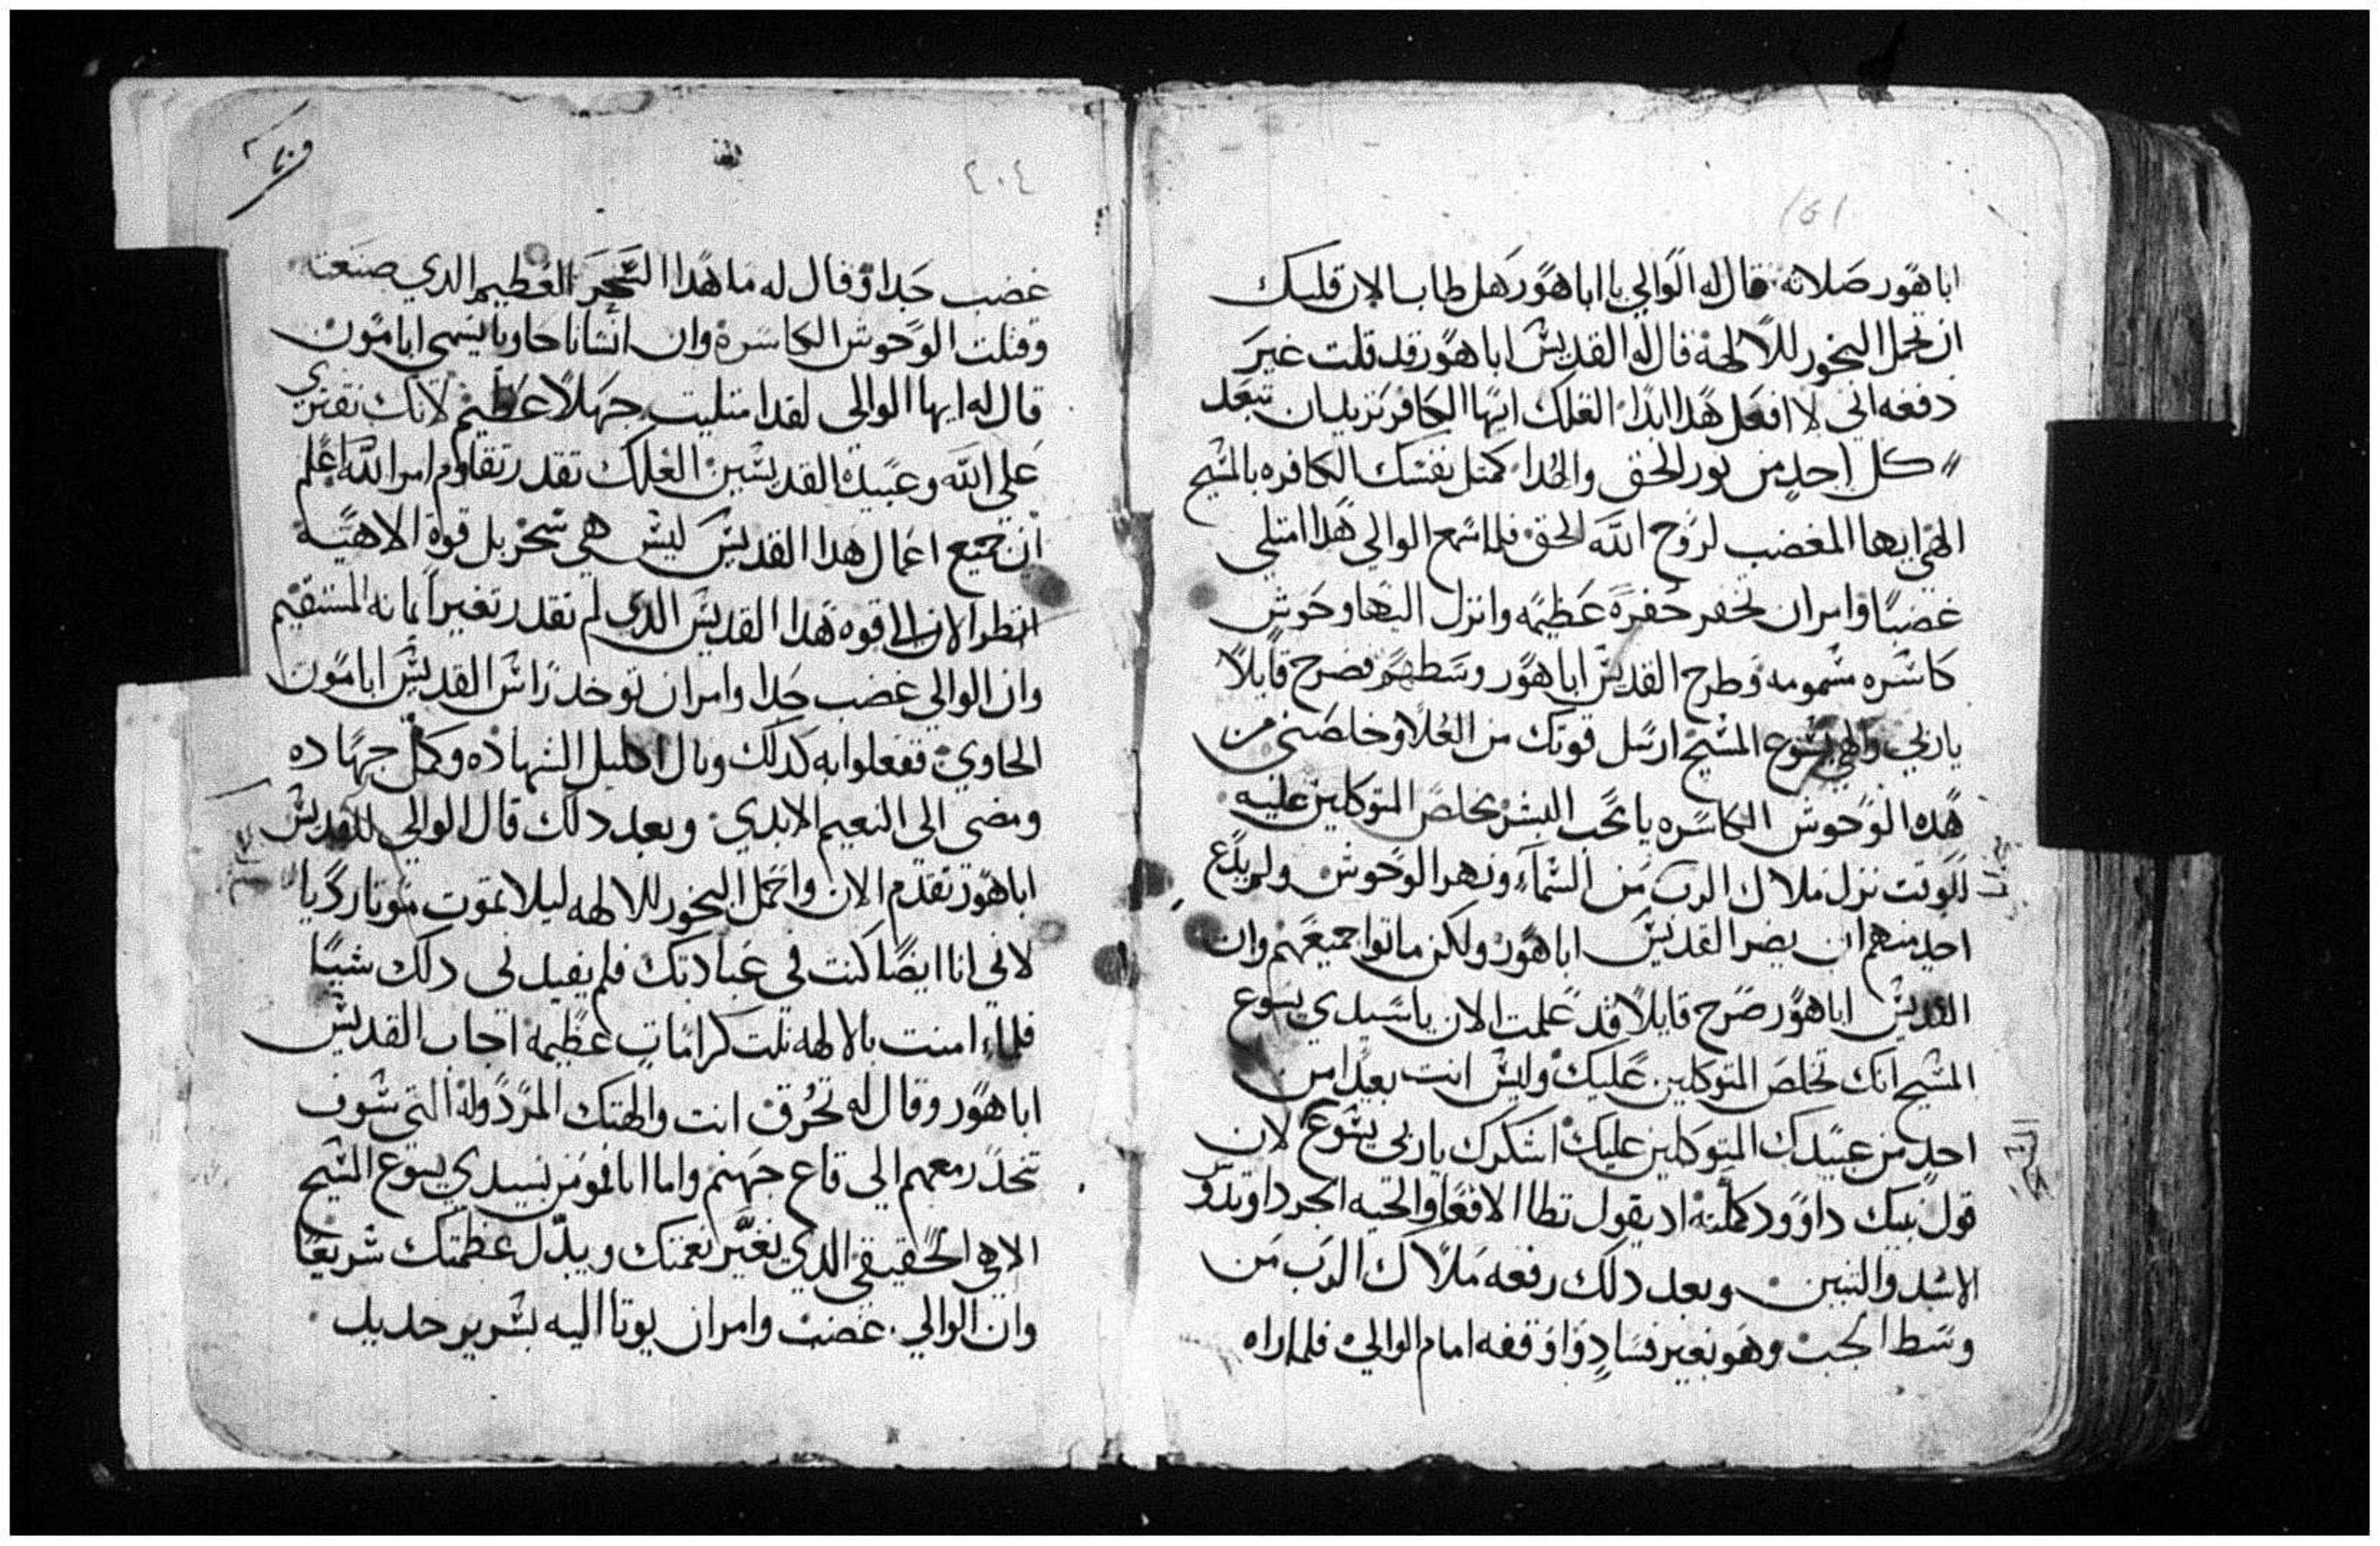 ١٥١
ابا هور صلاته قال له الوالي يا ابا هور هل طاب الان قلبك
ان تحمل البخور للالهة قال له القديس ابا هور قد قلت غير
دفعه اني لا افعل هدا ابدا العلك ايها الكافر تريد ان تبعد
كل احد من نور الحق والهدا كمتل نفسك الكافره بالمسيح
الهي ايها المغضب لروح الله الحق فلما سمع الوالي هدا امتلي
غضبا وامر ان تحفر حفرة عظيمه وانزل اليها وحوش
كاسره مسمومه وطرح القديس ابا هور وسطهم فصرخ قايلا
ياربي والهي يسوع المسيح ارسل قوتك من العلا وخلصني من
هده الوحوش الكاسره يا محب البشر مخلص المتوكلين عليه
للوقت نزل ملاك الرب من السماء ونهر الوحوش ولم يدع
احد منهم ان يضر القديس ابا هور ولكن ماتوا جميعهم وان
القديس ابا هور صرخ قايلا قد علمت الان يا سيدي يسوع
المسيح انك تخلص المتوكلين عليك وليس انت بعيدا من
احد من عبيدك المتوكلين عليك اشكرك ياربي يسوع لان
قول نبيك داوود كملته اد يقول تطا الافعا والحيه الجردا وتدوس
الاسد والتنين وبعد دلك رفعه ملاك الرب من
وسط الجب وهو بغير فساد واوقفه امام الوالي فلما راه
٤٠٤
غضب جدا وقال له ما هدا السحر العظيم الدي صنعت
وقتلت الوحوش الكاسرة وان انسانا حاويا يسمى ابامون
قال له ايها الوالى لقد امتليت جهلا عظيم لانك تفتري
على الله وعبيده القديسين العلك تقدر تقاوم امر الله اعلم
ان جميع اعمال هدا القديس ليس هي سحر بل قوة الاهية
انظر الان الى قوه هدا القديس الدى لم تقدر تغير امانه المستقيم
وان الوالي غضب جدا وامر ان توخد راس القديس ابامون
الحاوي ففعلوا به كدلك ونال اكليل الشهاده وكمل جهاده
ومضى الى النعيم الابدي وبعد دلك قال الوالي للقديس
ابا هور تقدم الان واحمل البخور للالهه ليلا تموت موتا رديا
لاني انا ايضا كنت في عبادتك فلم يفيدني دلك شيا
فلما امنت بالالهه نلت كرامات عظيمة اجاب القديس
ابا هور وقال له تحرق انت والهتك المردولة التي سوف
تنحدر معهم الى قاع جهنم واما انا فمومن بسيدي يسوع المسيح
الاهي الحقيقي الدي يغير نعمتك ويبدل عظمتك سريعا
وان الوالي غضب وامر ان يوتا اليه بسرير حديد